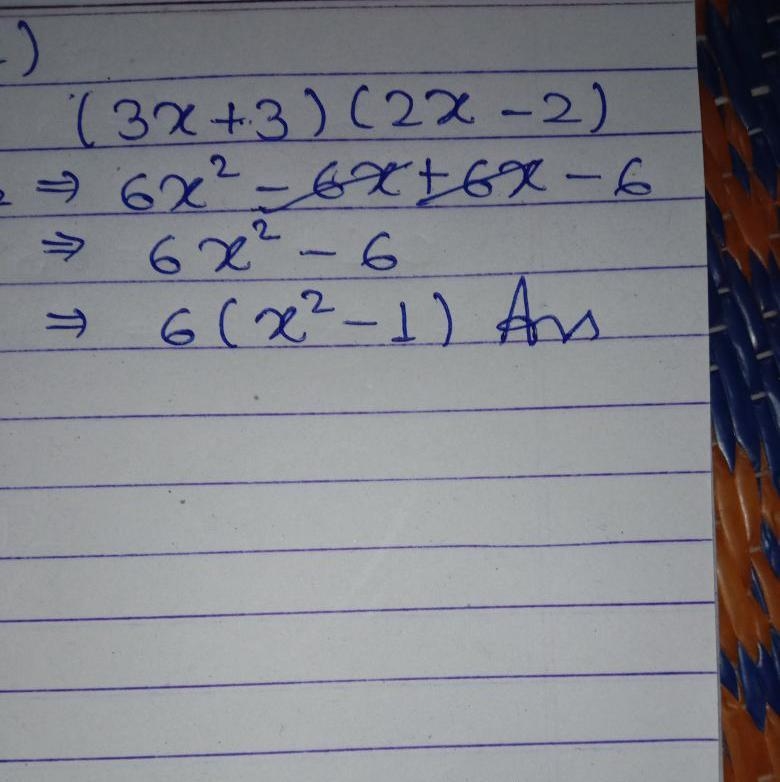 )
(3x+3)(2x-2)
⇒ 6x² - 6x + 6x - 6
⇒ 6x² - 6
⇒ 6(x² - 1) Ans